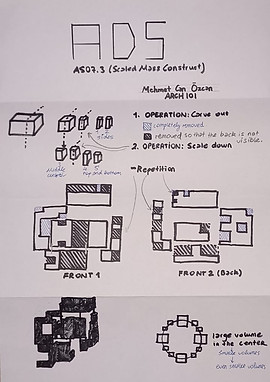 ADS
AS07.3 (Scaled Mass Construct)
Mehmet Can Özcan
ARCH101
1. OPERATION: Carve out
completely removed
removed so that the back is not
visible.
2. OPERATION: Scale down
sides
middle
top and bottom
Repetition
FRONT 1
FRONT 2 (Back)
large volume
in the center
smaller volumes
even smaller volumes